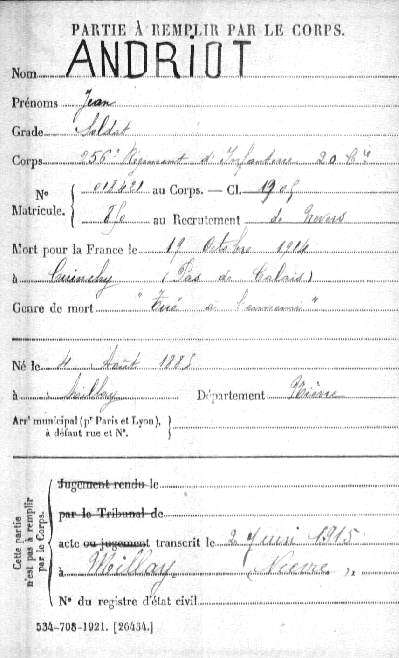 PARTIE À REMPLIR PAR LE CORPS.
Nom ANDRIOT
Prénoms Jean
Grade Soldat
Corps 256e Régiment d'Infanterie 20 Cie
N° Matricule. { 018421 au Corps. — Cl. 1905
850 au Recrutement de Nevers
Mort pour la France le 19 Octobre 1914
à Cuinchy (Pas de Calais)
Genre de mort "Tué à l'ennemi"
Né le 4 Août 1885
à Millay Département Nièvre
Arrt municipal (pr Paris et Lyon), à défaut rue et N°. }
Cette partie n'est pas à remplir par le Corps.
Jugement rendu le
par le Tribunal de
acte ou jugement transcrit le 2 Juin 1915
à Millay (Nièvre),,
N° du registre d'état civil
534-708-1921. [26434.]